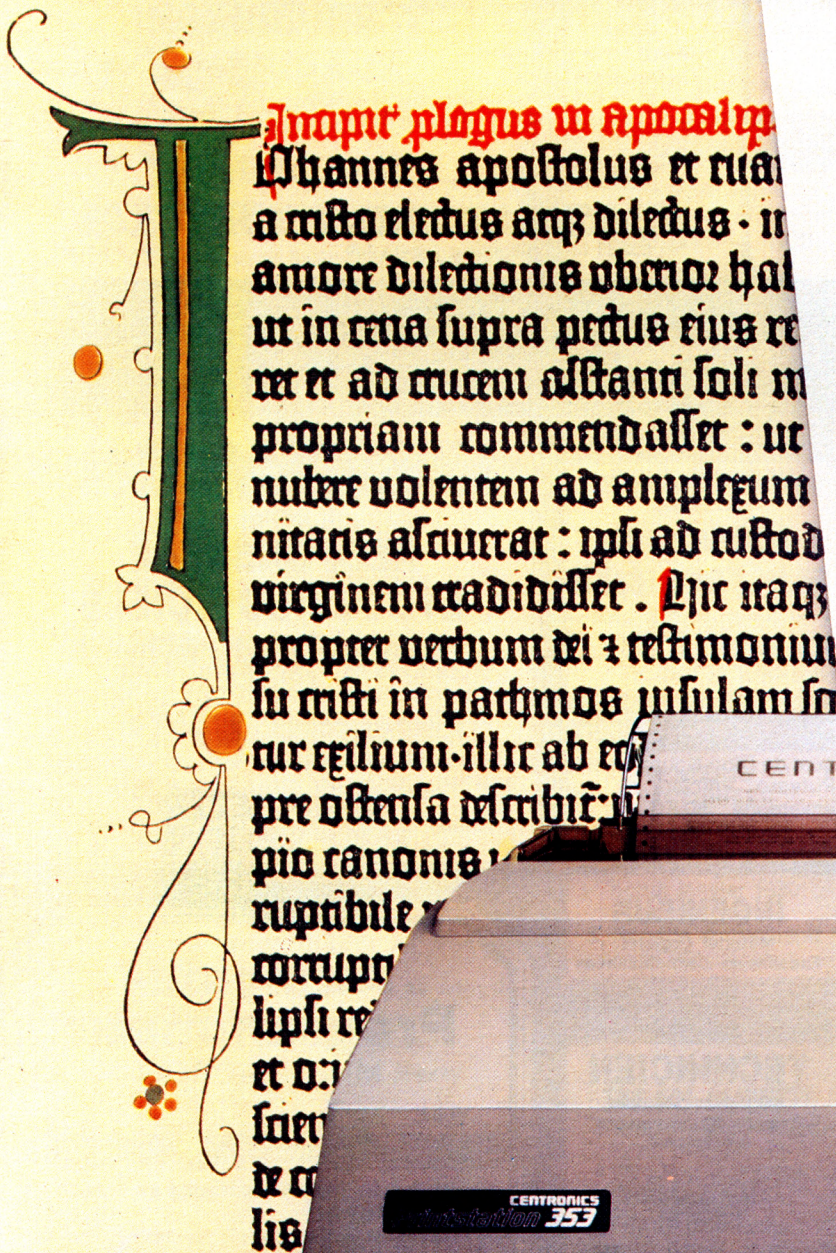 Incipit plogus in apocalip
Iohannes apoſtolus et euan
a criſto electus atqꝫ dilectus · in
amore dilectionis uberior hab
ut in cena ſupra pectus eius re
ret et ad crucem aſſtanti ſoli m
propriam commendaſſet : ut
nubere volentem ad amplexum
nitatis aſciuerat : ipſi ad cuſtod
virginem tradidiſſet . Hic itaqꝫ
propter verbum dei ⁊ teſtimonium
ſu criſti in pathmos inſulam ſo
tur exilium·illic ab eo
CENT
pre oſtenſa deſcribit᷑:
pio canonis
ruptibile
corrupti
lipſi re
et ori
ſcien
de co
CENTRONICS
printstation 353
lis